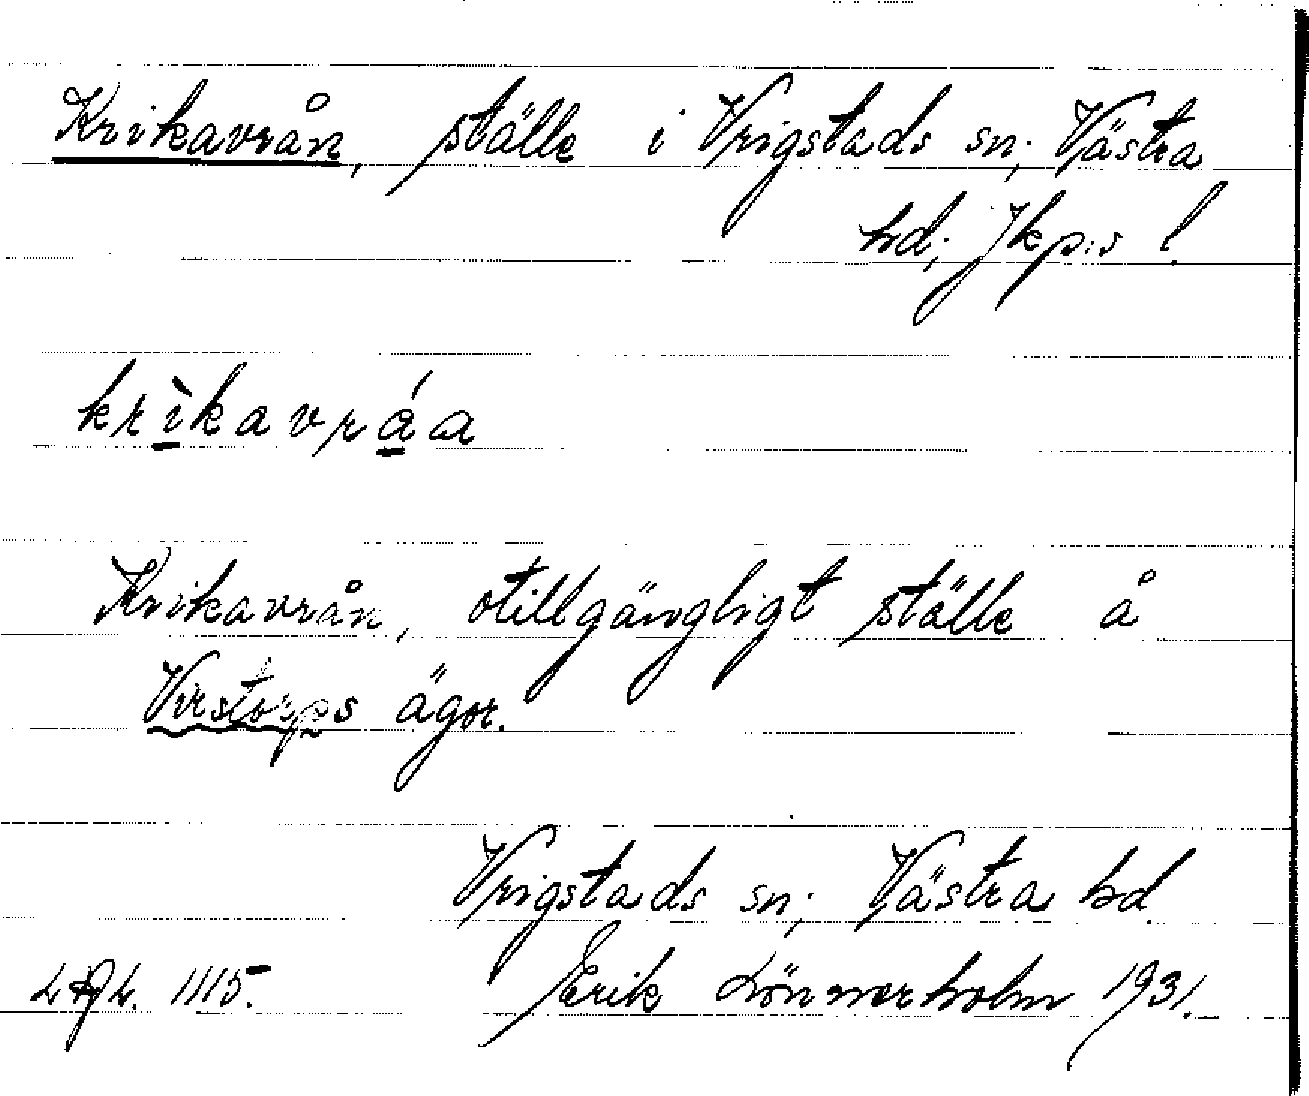 Krikavrån, ställe i Vrigstads sn; Västra
hd; Jkp:s l.
krìkavráa
Krikavrån, otillgängligt ställe å
Virstorps ägor.
Vrigstads sn; Västra hd.
1115. Erik Lönnerholm 1931.